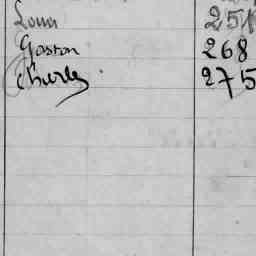 Louis 251
Gaston 268
Charles 275